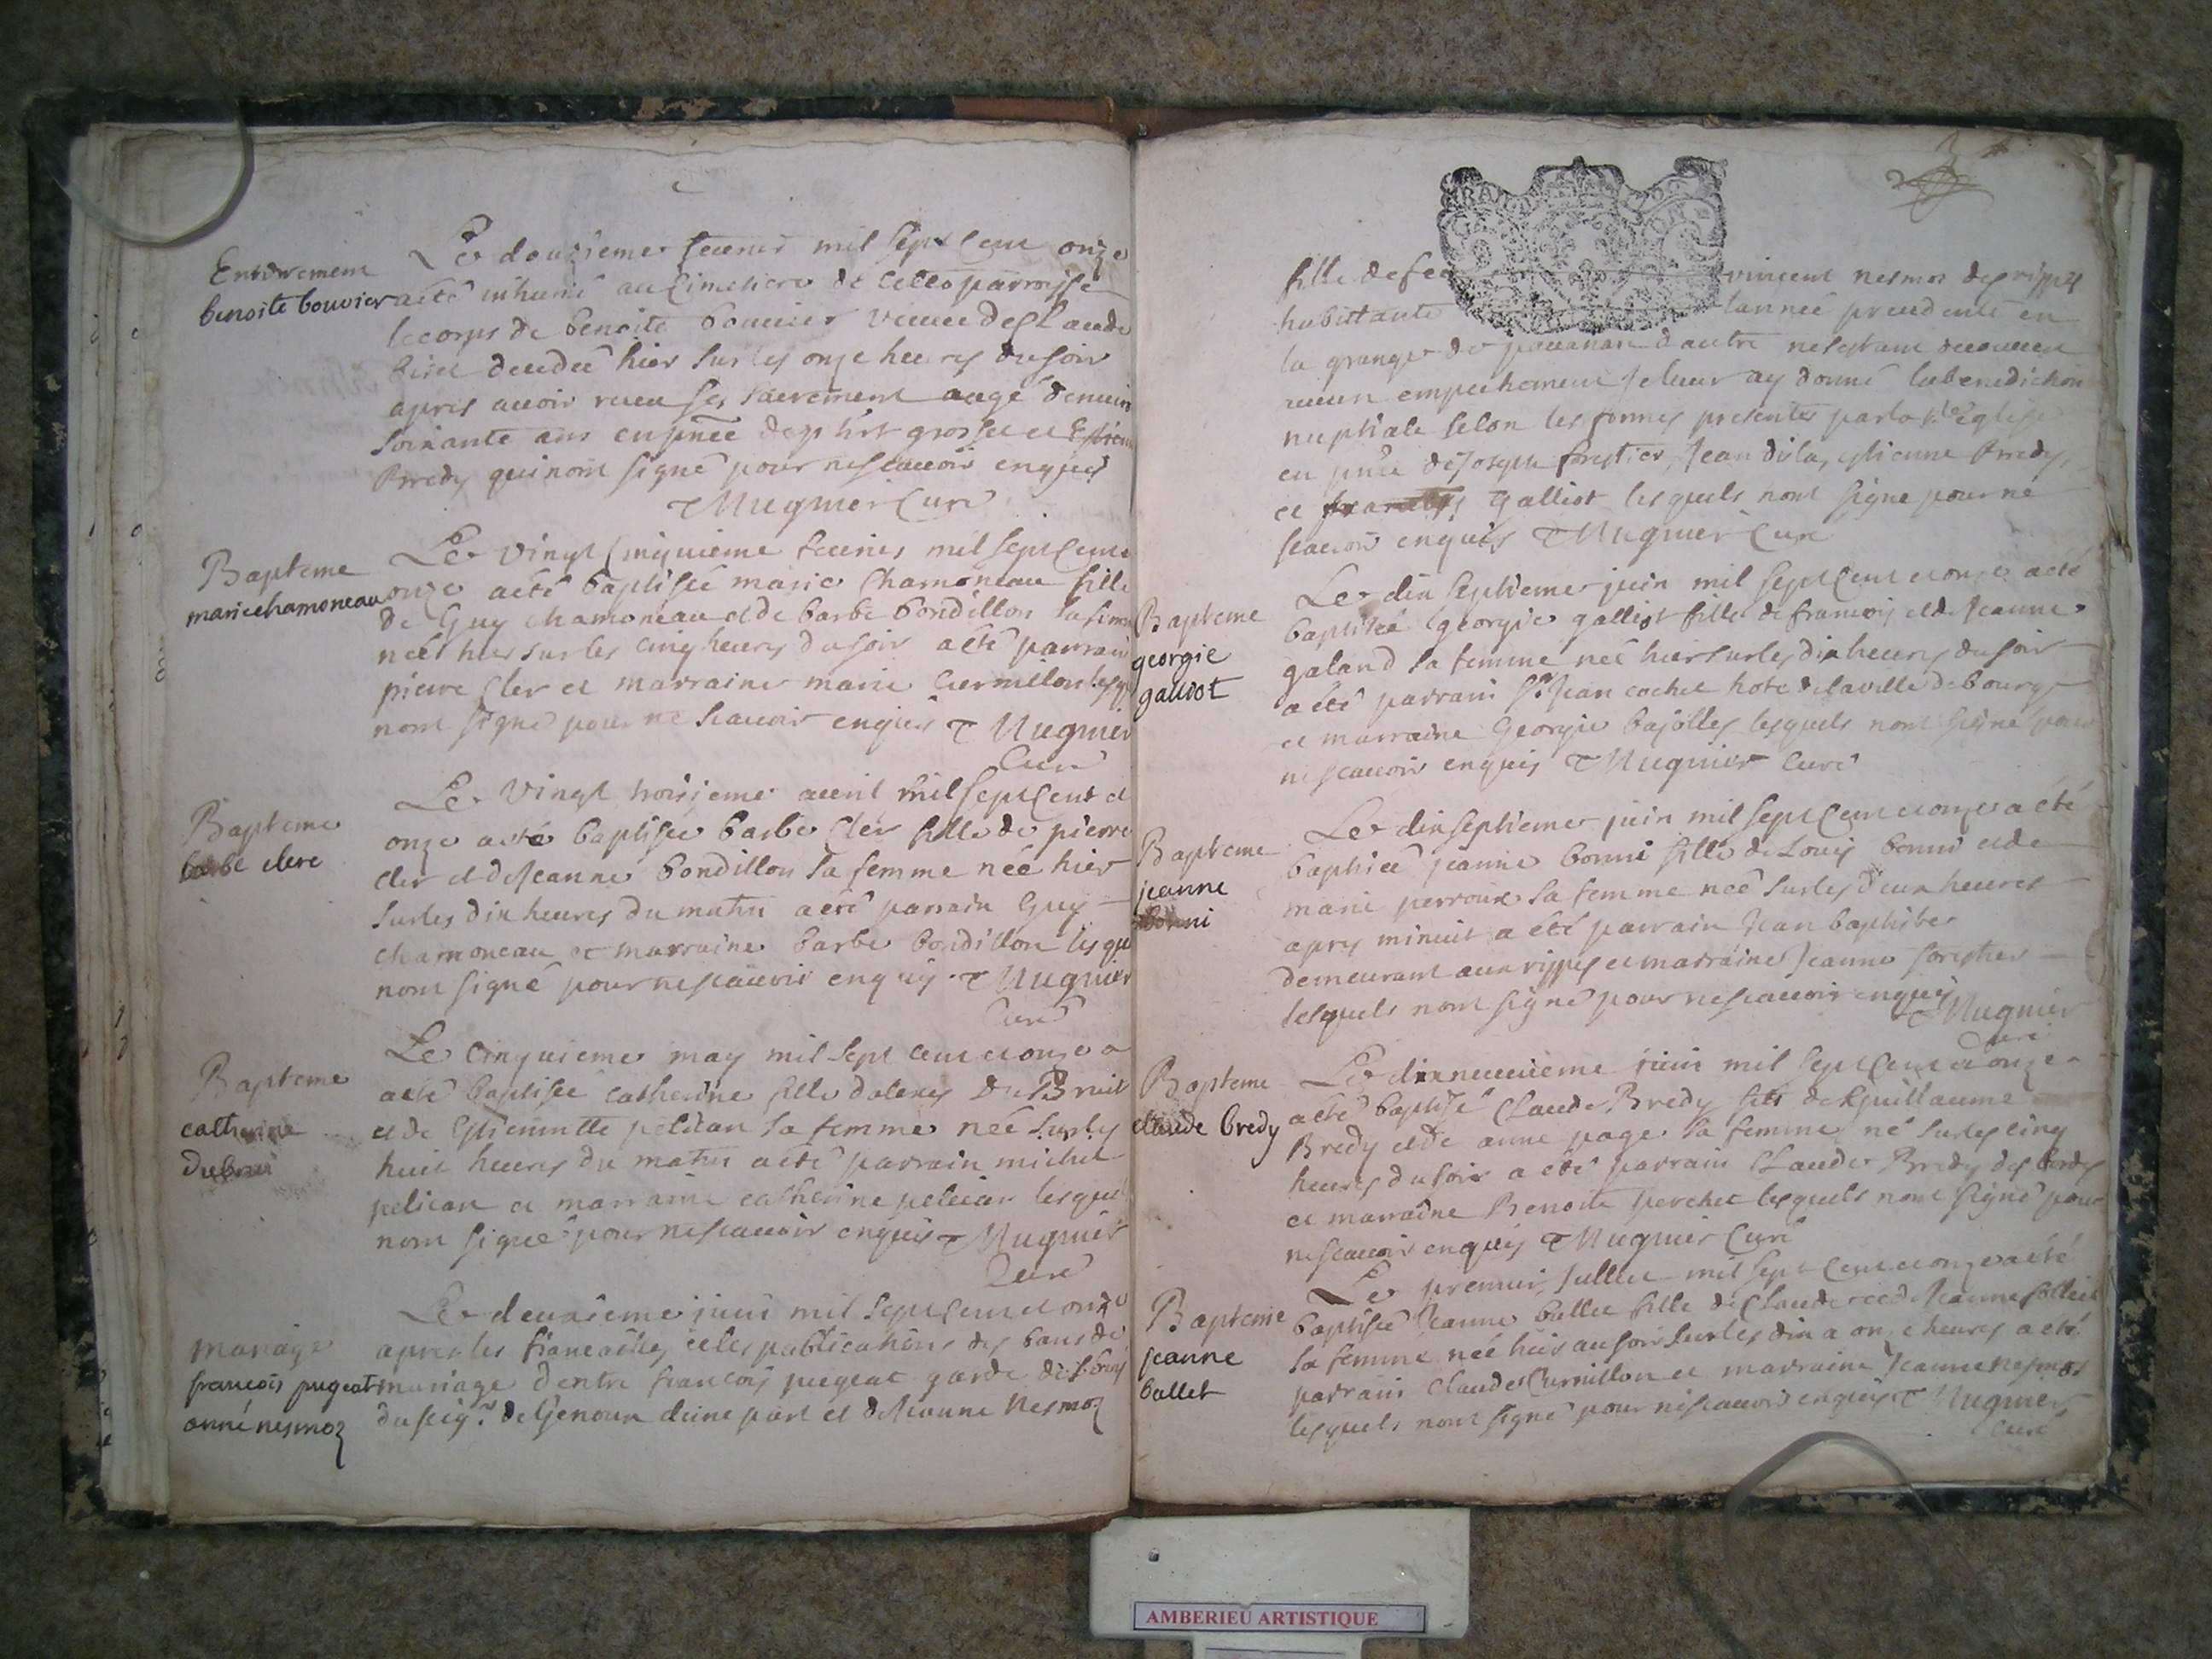 Enterrement
benoite bouvier
Le douzieme feuvrier mil sept Cent onze
a eté inhumé au Cimetiere de cette parroisse
le corps de benoite bouvier veuve de Claude
decedeé hier sur les onze heures du soir
apres avoir receu ses sacrement augé denviron
soixante ans en pnce de grosset et
Bredy qui nont signé pour ne scavoir enquis
Mugnier Curé
Bapteme
marie chamoneau
Le vingt Cinquieme feuvrier mil sept Cent
onze a eté baptisée marie Chamoneau fille
de Guy chamoneau et de barbe bondillon sa femme
neé hier sur les cinq heures du soir a eté parrain
pierre Cler et marraine marie Curnillon lesq
nont signé pour ne scavoir enquis Mugnier
Curé
Bapteme
barbe clere
Le vingt troisieme avril mil sept Cent et
onze a eté baptisée barbe Cler fille de pierre
Cler et de Jeanne bondillon sa femme née hier
sur les dix heures du matin a eté parrain Guy
chamoneau et marraine barbe bondillon lesqu
nont signé pour ne scavoir enquis Mugnier
Curé
Bapteme
catherine
Dubrui
Le Cinquieme may mil sept cent et onze a
a eté baptisée catherine fille dalexis Du Bruit
et de Estiennette pelican sa femme neé sur les
huit heures du matin a eté parrain michel
pelican et marraine catherine pelican lesquel
nont signé pour ne scavoir enquis Mugnier
Curé
mariage
françois pugeat
anné nesmoz
Le deuxieme juin mil sept Cent et onze
apres les fiancailles et les publications des bans de
mariage dentre françois pugeat garde des bois
du seigr. de Genoux dune part et de Jeanne Nesmoz
fille de feu vincent nesmoz des rippes
habittante lannée precedente en
la grange de dautre ne sestant decouvert
aucun empechement Je leur ay donné la benediction
nuptiale selon les formes presentes par la ste Eglise
en pnce de Joseph forestier, Jean dila, estienne Bredy,
et galliot lesquels nont signe pour ne
scavoir enquis Mugnier Curé
Bapteme
georgie
gauiot
Le dix septieme juin mil sept Cent et onze a eté
baptisée georgie galliot fille de francois et de Jeanne
galand sa femme neé hier sur les dix heures du soir
a eté parrain Sr Jean cochet hote de la ville de bourg
et marraine Georgie bajolles lesquels nont signé pour
ne scavoir enquis Mugnier Curé
Bapteme
jeanne
bonni
Le dix septieme juin mil sept Cent et onze a été
baptisée jeanne bonni fille de Louis bonni et de
marie perroux sa femme neé sur les deux heures
apres minuit a eté parrain Jean baptiste
demeurant aux rippes et marraine Jeanne forestier
lesquels nont signé pour ne scavoir enquis
Mugnier
Curé
Bapteme
claude bredy
Le dix neuvieme juin mil sept Cent et onze
a eté baptisé Claude Bredy fils de Guillaume
Bredy et de anne page sa femme né sur les cinq
heures du soir a eté parrain Claude Bredy des bordes
et marraine Benoite perchet lesquels nont signé pour
ne scavoir enquis Mugnier Curé
Bapteme
jeanne
ballet
Le premier Juillet mil sept Cent et onze a eté
baptisée Jeanne ballet fille de Claude et de Jeanne
sa femme neé hier au soir sur les dix a onze heures a eté
parrain Claude Curnillon et marraine Jeanne Nesmoz
lesquels nont signé pour ne scavoir enquis Mugnier
Curé
AMBERIEU ARTISTIQUE